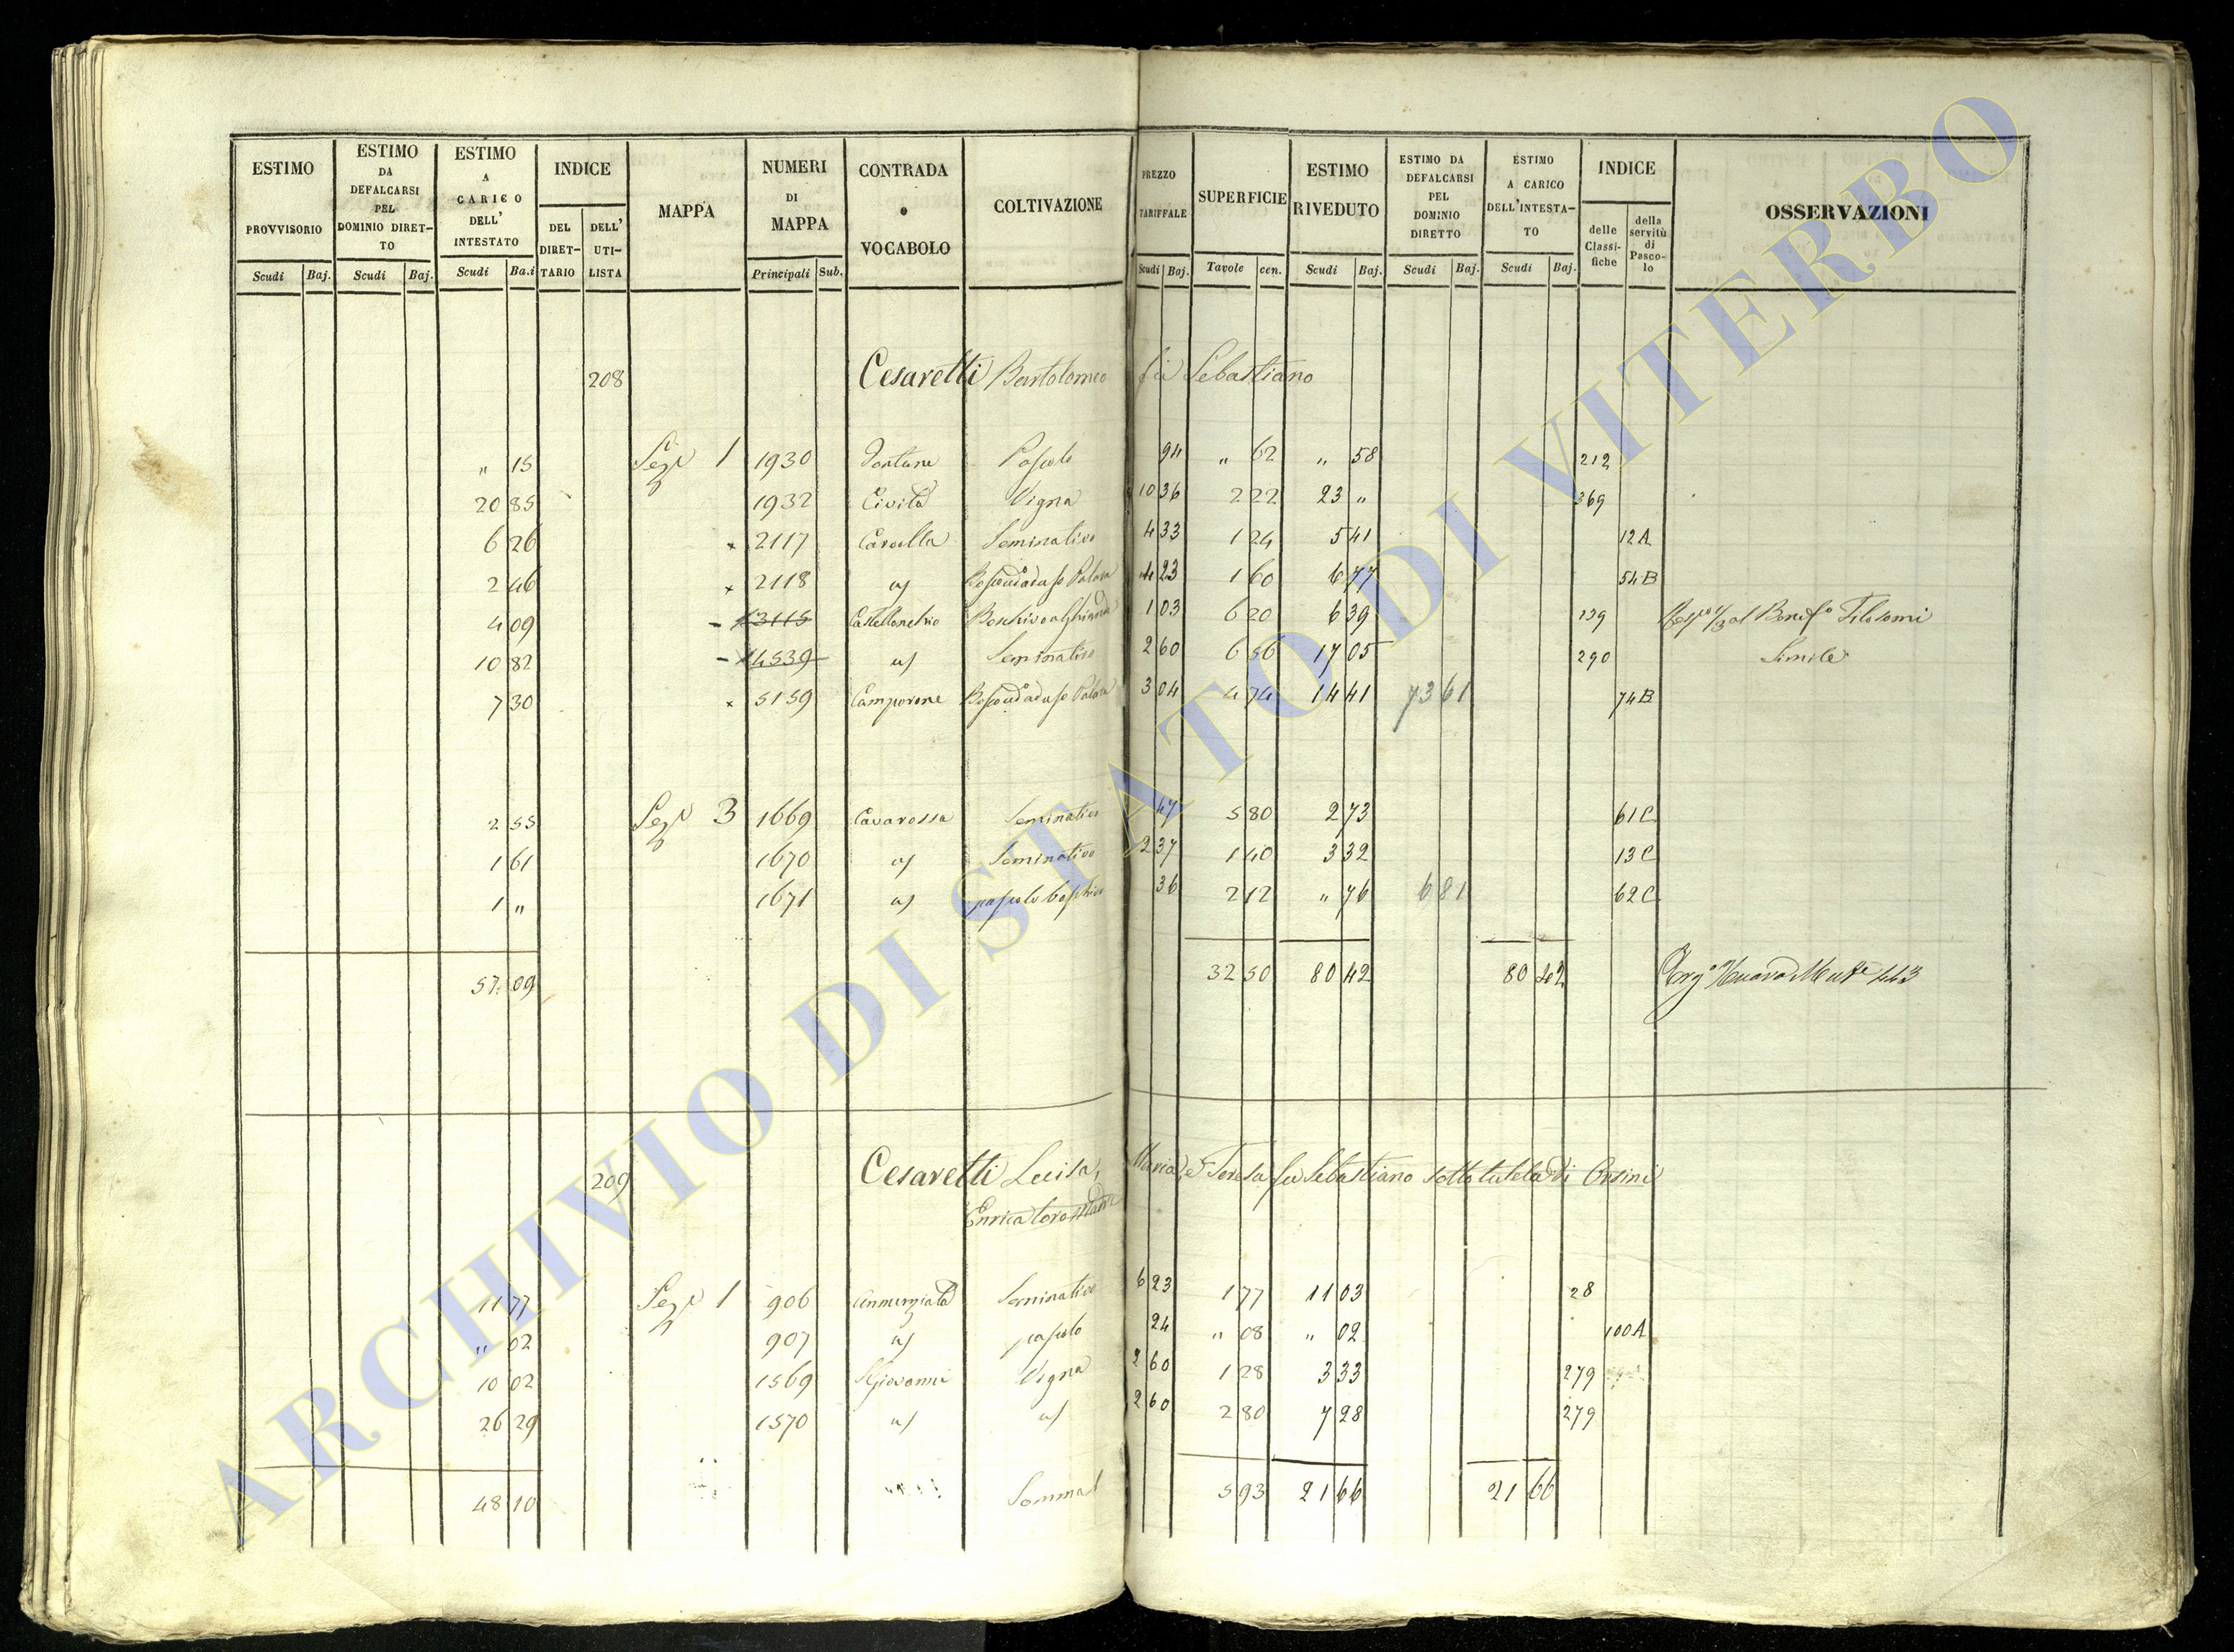 ESTIMO PROVVISORIO Scudi Baj.
ESTIMO DA DEFALCARSI PEL DOMINIO DIRETTO Scudi Baj.
ESTIMO A CARICO DELL' INTESTATO Scudi Ba.i
INDICE DEL DIRETTARIO DELL' UTILISTA
MAPPA
NUMERI DI MAPPA Principali Sub.
CONTRADA o VOCABOLO
COLTIVAZIONE
PREZZO TARIFFALE Scudi Baj.
SUPERFICIE Tavole cen.
ESTIMO RIVEDUTO Scudi Baj.
ESTIMO DA DEFALCARSI PEL DOMINIO DIRETTO Scudi Baj.
ESTIMO A CARICO DELL'INTESTATO Scudi Baj.
INDICE delle Classifiche della servitù di Pascolo
OSSERVAZIONI
208 Cesaretti Bartolomeo fu Sebastiano
" 15 Sez.e 1 1930 Pascolo 94 " 62 " 58 212
20 85 1932 Civita Vigna 10 36 2 22 23 " 369
6 26 x 2117 Seminativo 4 33 1 24 5 41 12A
2 46 x 2118 4 23 1 60 6 77 54B
4 09 - 3115 1 03 6 20 6 39 139
10 82 - 4539 Seminativo 2 60 6 56 17 05 290 Simile
7 30 x 5159 Camporone 3 04 4 74 14 41 73 61 74B
2 55 Sez.e 3 1669 Cavarossa Seminativo 47 5 80 2 73 61C
1 61 1670 Seminativo 2 37 1 40 3 32 13C
1 " 1671 pascolo boschivo 36 2 12 " 76 6 81 62C
57 09 32 50 80 42 80 42
209 Cesaretti Luisa, Maria, e Teresa fu Sebastiano sotto tutela di Orsini
Enrica loro Madre
11 77 Sez.e 1 906 Annunziata Seminativo 6 23 1 77 11 03 28
" 02 907 pascolo 24 " 08 " 02 100A
10 02 1569 S Giovanni Vigna 2 60 1 28 3 33 279
26 29 1570 2 60 2 80 7 28 279
48 10 Somma 5 93 21 66 21 66
ARCHIVIO DI STATO DI VITERBO